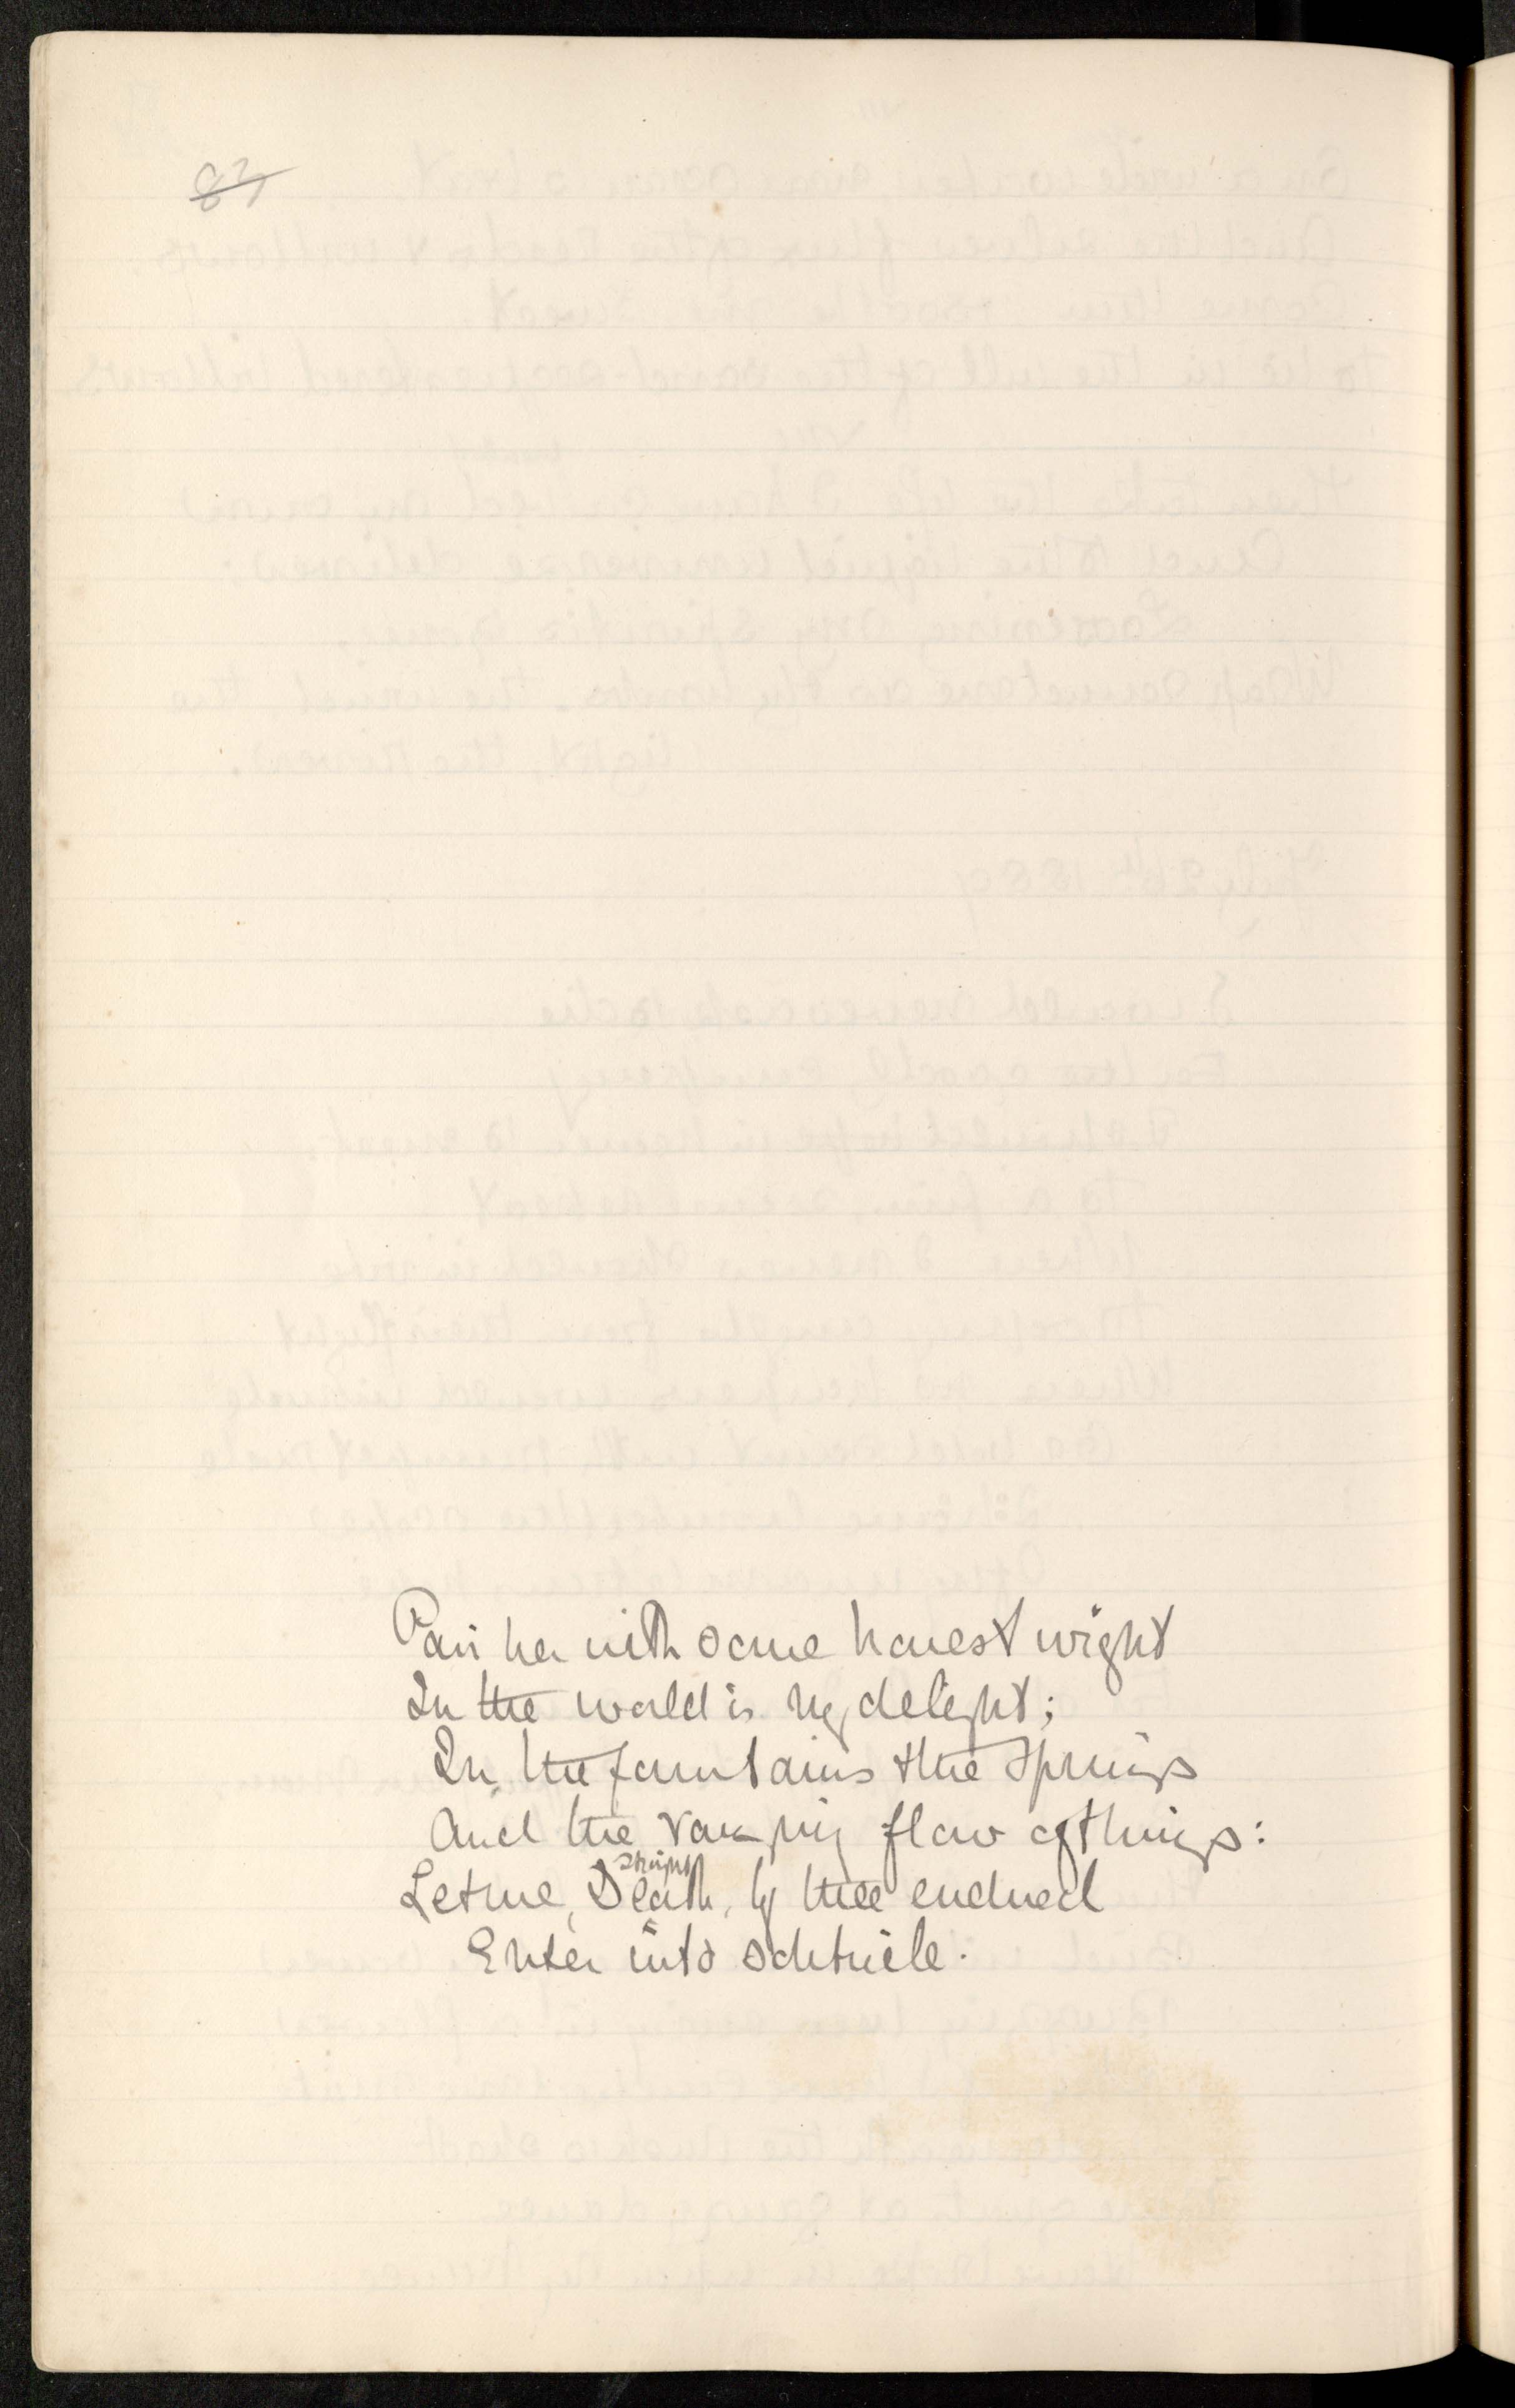 83
Pair her with some honest wight
In the world is my delight;
In the fountains & the springs
And the varying flow of things:
Let me, Death, by thee endued
straight
Enter into solitude.